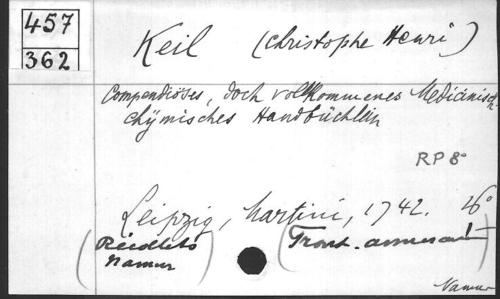 457
362
Keil (Christophe Henri)
Compendiöses, doch vollkommenes Medicinisch
chÿmisches Handbüchlein
RP 8°
Leipzig, Martini, 1742.
(
Namur
) (Front.
)
Namur